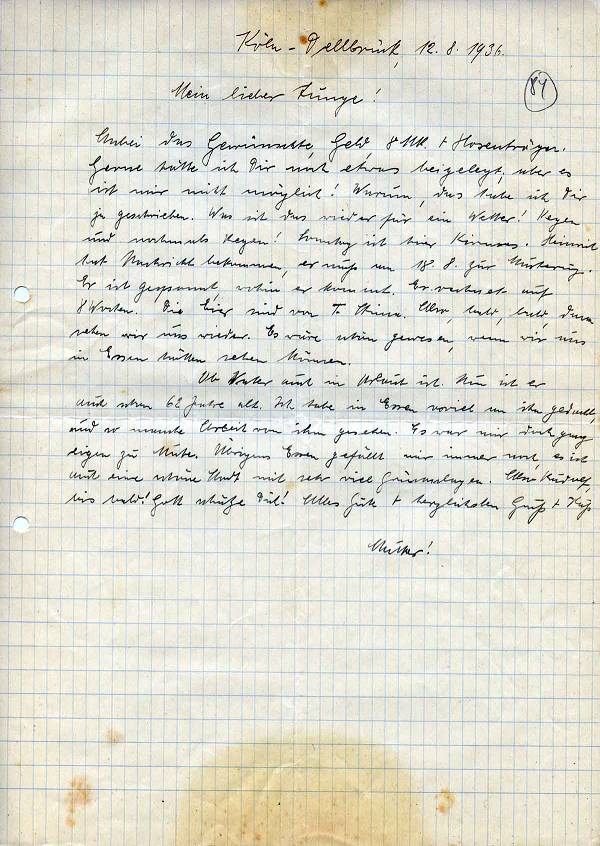 Köln-Dellbrück, 12.8.1936.
84
Mein lieber Junge!
Anbei das Gewünschte, Geld, 8 Mk. + Hosenträger.
Gerne hätte ich Dir noch etwas beigelegt, aber es
ist mir nicht möglich! Warum, das habe ich Dir
ja geschrieben. Was ist das wieder für ein Wetter! Regen
und nochmals Regen! Sonntag ist hier Kirmes. Heinrich
hat Nachricht bekommen, er muß am 18.8. zur Musterung.
Er ist gespannt, wohin er kommt. Er rechnet auf
8 Wochen. Die Eier sind von T. Also, bald, bald, dann
sehen wir uns wieder. Es wäre schön gewesen, wenn wir uns
in Essen hätten sehen können.
Ob Vater auch in Arbeit ist. Nun ist er
auch schon 62 Jahre alt. Ich habe in Essen soviel an ihn gedacht,
und so manche Arbeit von ihm gesehen. Es war mir doch ganz
eigen zu Mute. Übrigens Essen gefällt mir immer noch, es ist
auch eine schöne Stadt mit sehr viel Grünanlagen. Also Rudolf,
bis bald! Gott schütze Dich! Alles Gute + herzlichsten Gruß + Kuß
Mutter!